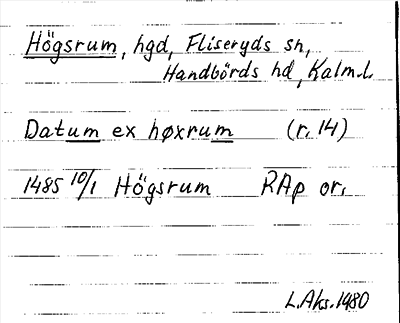 Högsrum, hgd, Fliseryds sn,
Handbörds hd, Kalm.l.
Datum ex høxrum (r. 14)
1485 10/1 Högsrum RAp or.
L.Aks. 1980